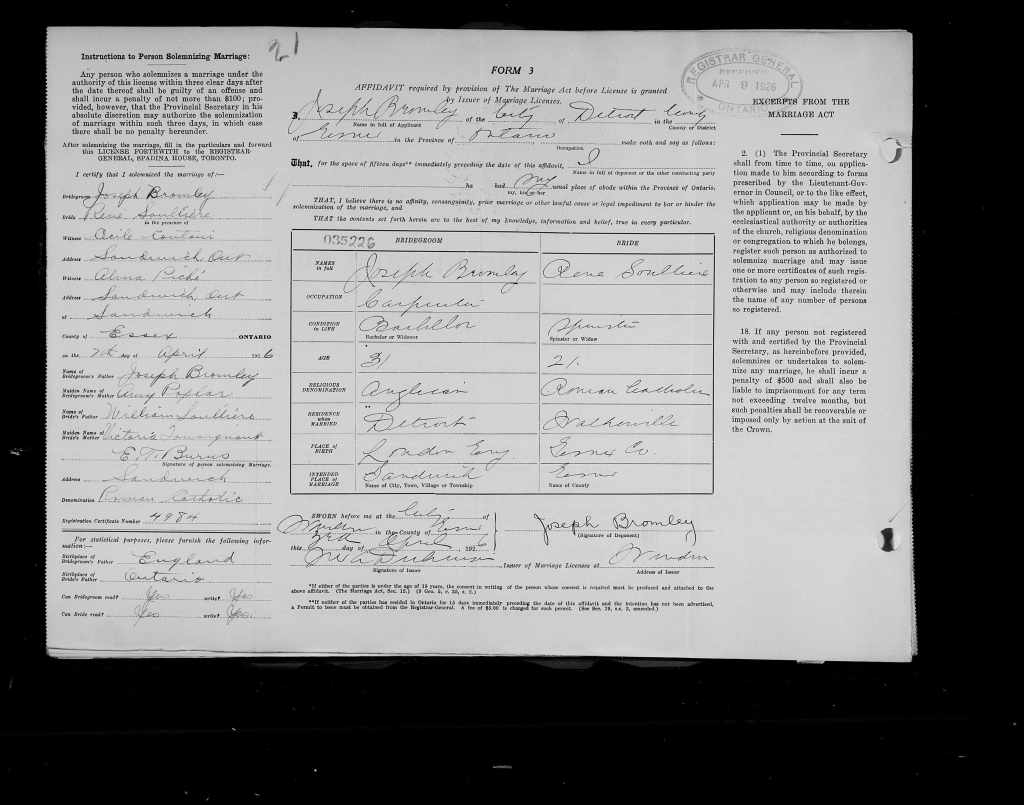 21
Instructions to Person Solemnizing Marriage:
Any person who solemnizes a marriage under the
authority of this license within three clear days after
the date thereof shall be guilty of an offense and
shall incur a penalty of not more than $100; pro-
vided, however, that the Provincial Secretary in his
absolute discretion may authorize the solemnization
of marriage within such three days, in which case
there shall be no penalty hereunder.
After solemnizing the marriage, fill in the particulars and forward
this LICENSE FORTHWITH to the REGISTRAR-
GENERAL, SPADINA HOUSE, TORONTO.
I certify that I solemnized the marriage of:—
Bridegroom Joseph Bromley
Bride Rene Soulliere
in the presence of
Witness Cecile
Address Sandwich Ont
Witness Alma Piché
Address Sandwich Ont
at Sandwich
County of Essex ONTARIO
on the 7th day of April 1926
Name of Bridegroom's Father Joseph Bromley
Maiden Name of Bridegroom's Mother Amy
Name of Bride's Father William Soulliere
Maiden Name of Bride's Mother Victoria
E. N. Burns
Signature of person solemnizing Marriage.
Address Sandwich
Denomination Roman Catholic
Registration Certificate Number 4984
For statistical purposes, please furnish the following infor-
mation:—
Birthplace of Bridegroom's Father England
Birthplace of Bride's Father Ontario
Can Bridegroom read? Yes write? Yes
Can Bride read? Yes write? Yes.
FORM 3
AFFIDAVIT required by provision of The Marriage Act before License is granted
by Issuer of Marriage Licenses.
I, Joseph Bromley of the City of Detroit in the County
Name in full of Applicant
County or District
of Essex in the Province of Ontario make oath and say as follows:
Occupation.
That, for the space of fifteen days** immediately preceding the date of this affidavit, I
Name in full of deponent or the other contracting party
ha had my usual place of abode within the Province of Ontario.
my, his or her
THAT, I believe there is no affinity, consanguinity, prior marriage or other lawful cause or legal impediment to bar or hinder the
solemnization of the marriage, and
THAT the contents set forth herein are to the best of my knowledge, information and belief, true in every particular.
035226 BRIDEGROOM BRIDE
NAMES in full Joseph Bromley Rene Soulliere
OCCUPATION Carpenter
CONDITION in LIFE Bachelor Spinster
Bachelor or Widower Spinster or Widow
AGE 31 21
RELIGIOUS DENOMINATION Anglican Roman Catholic
RESIDENCE when MARRIED Detroit Walkerville
PLACE of BIRTH London Eng Essex Co.
INTENDED PLACE of MARRIAGE Sandwich Essex
Name of City, Town, Village or Township Name of County
SWORN before me at the City of
Windsor in the County of Essex
this day of April 1926
Signature of Issuer
Joseph Bromley
(Signature of Deponent)
Issuer of Marriage Licenses at Windsor
Address of Issuer
*If either of the parties is under the age of 18 years, the consent in writing of the person whose consent is required must be produced and attached to the
above affidavit. (The Marriage Act, Sec. 15.)
**If neither of the parties has resided in Ontario for 15 days immediately preceding the date of this affidavit and the intention has not been advertised,
a Permit to issue must be obtained from the Registrar-General. A fee of $5.00 is charged for such permit.
REGISTRAR GENERAL
RECEIVED
APR 9 1926
ONTARIO
EXCERPTS FROM THE
MARRIAGE ACT
2. (1) The Provincial Secretary
shall from time to time, on appli-
cation made to him according to forms
prescribed by the Lieutenant-Gov-
ernor in Council, or to the like effect,
which application may be made by
the applicant or, on his behalf, by the
ecclesiastical authority or authorities
of the church, religious denomination
or congregation to which he belongs,
register such person as authorized to
solemnize marriage and may issue
one or more certificates of such regis-
tration to any person so registered or
otherwise and may include therein
the name of any number of persons
so registered.
18. If any person not registered
with and certified by the Provincial
Secretary, as hereinbefore provided,
solemnizes or undertakes to solem-
nize any marriage, he shall incur a
penalty of $500 and shall also be
liable to imprisonment for any term
not exceeding twelve months, but
such penalties shall be recoverable or
imposed only by action at the suit of
the Crown.